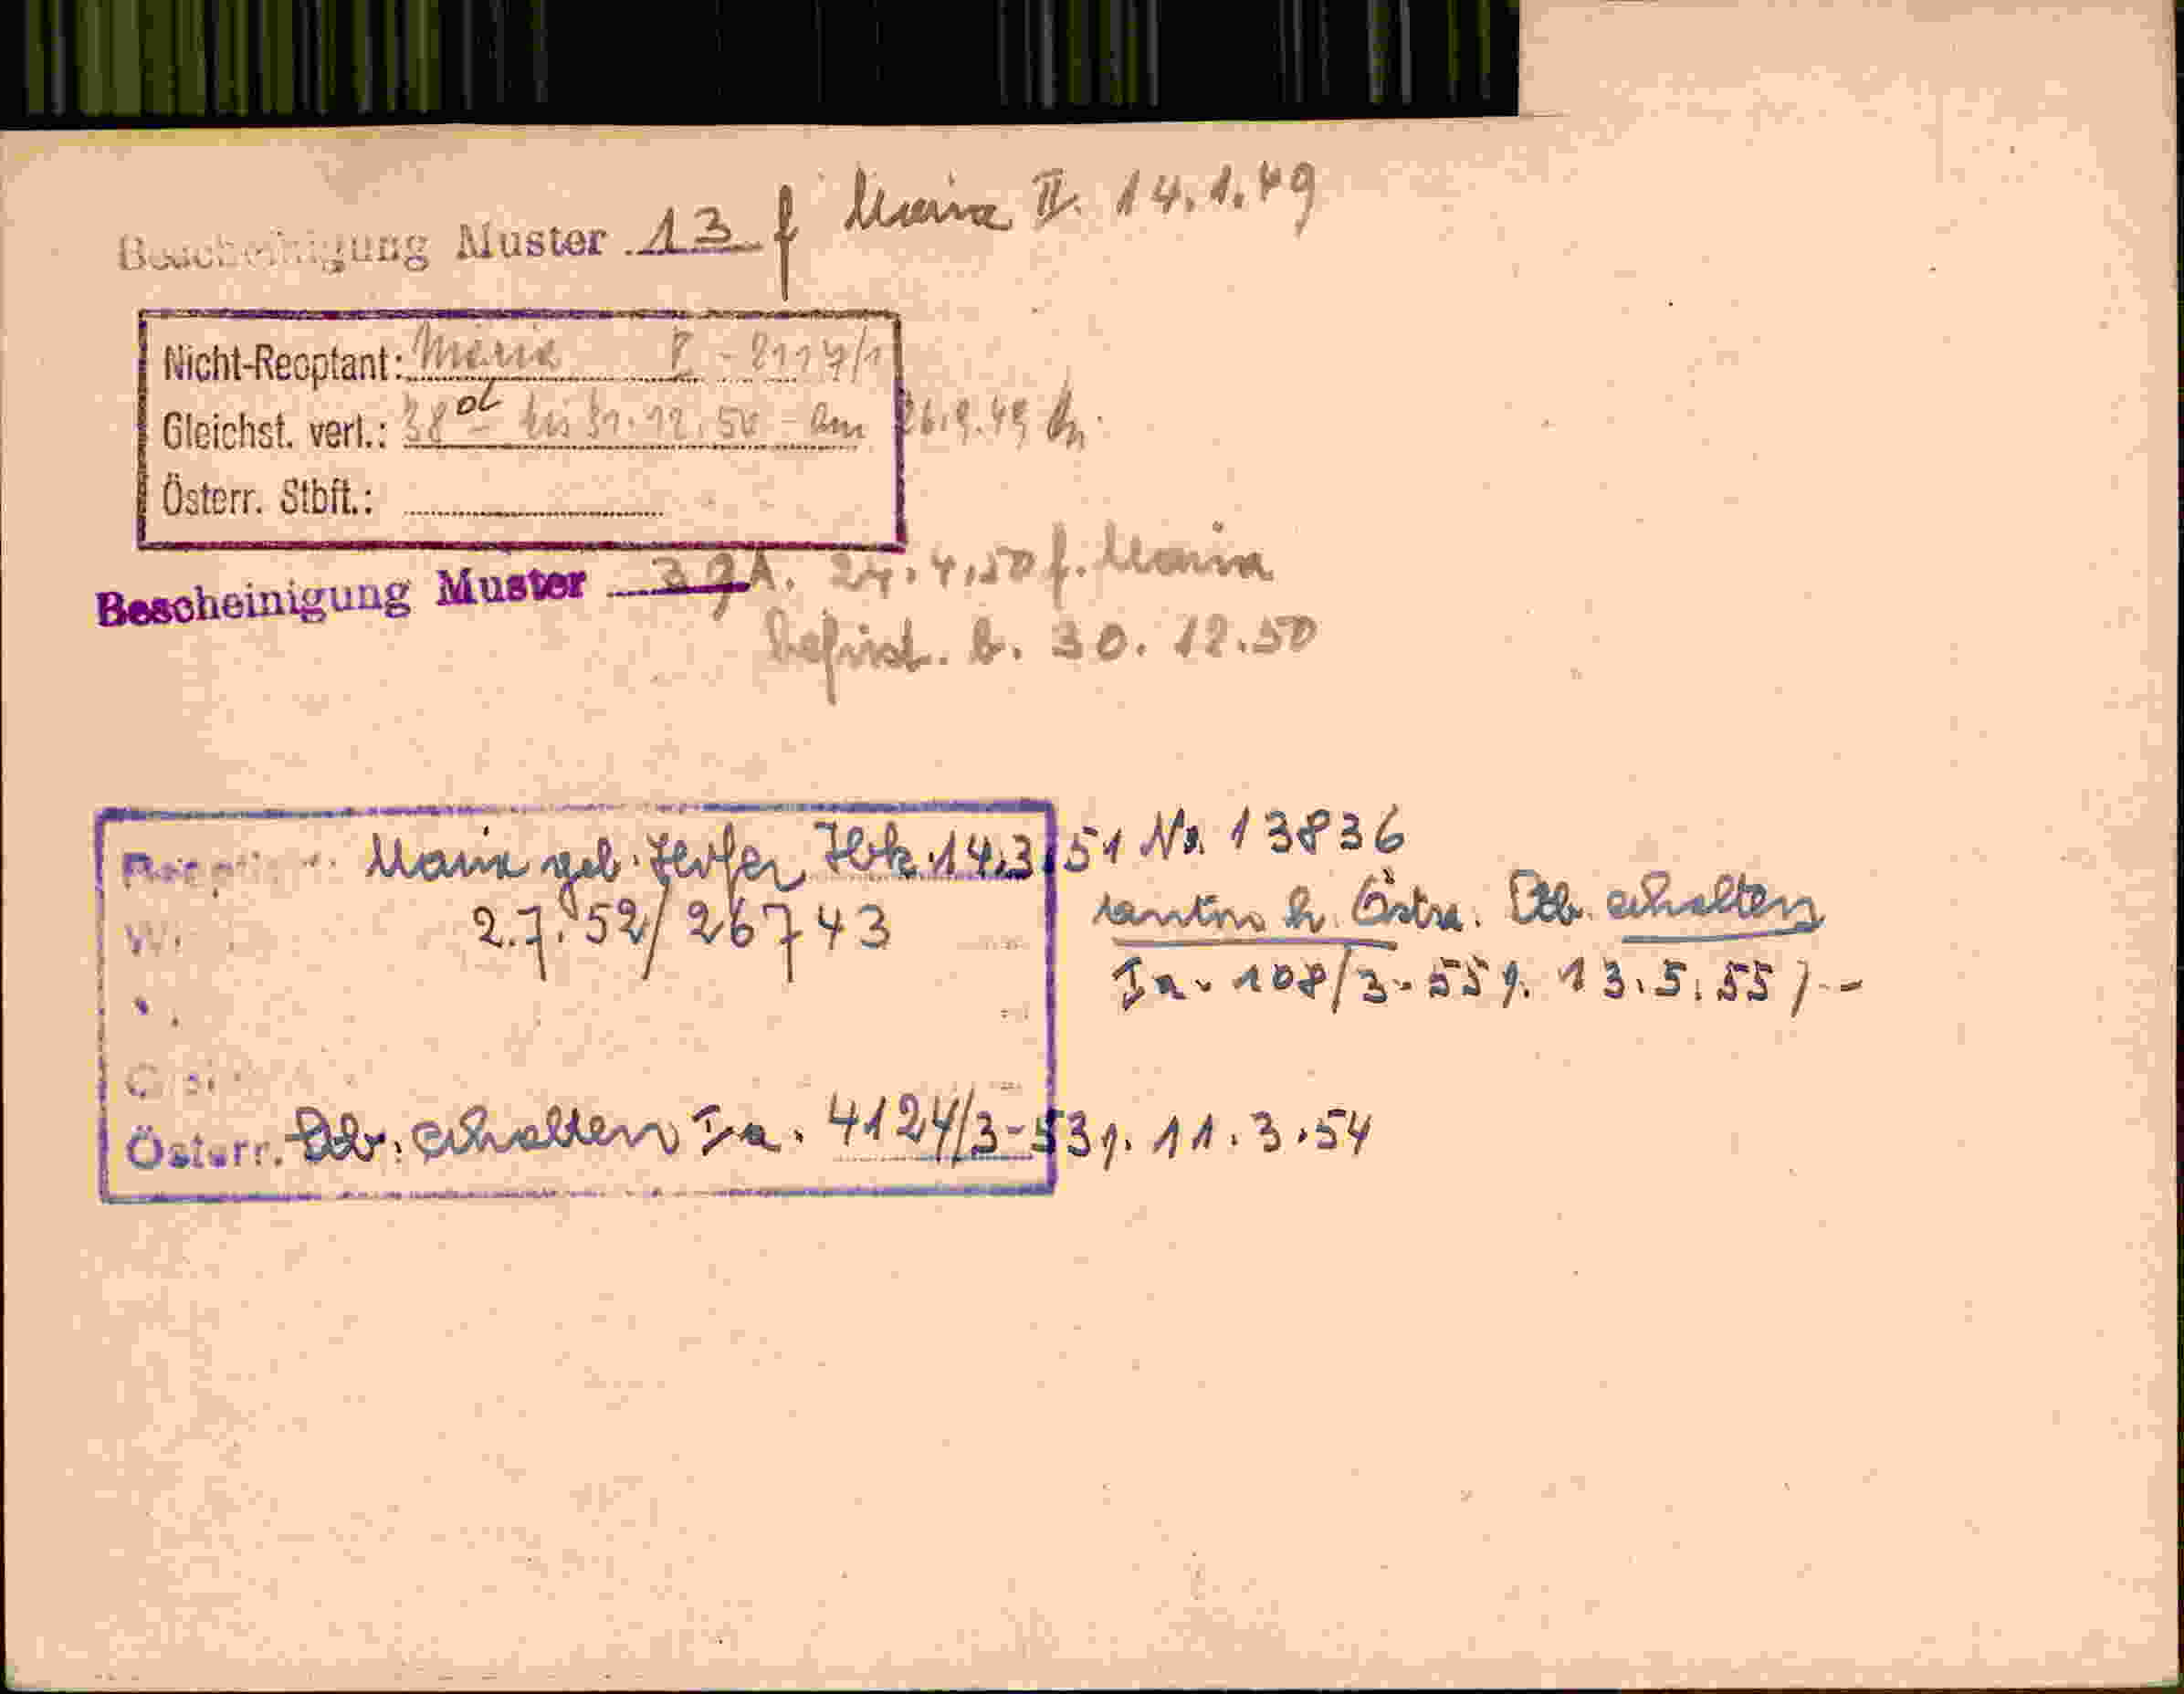 Bescheinigung Muster 13 f Maria II. 14.1.49
Nicht-Reoptant: Maria R - 2117/1
Gleichst. verl.: bis 31.12.50 am 26.9.49
Österr. Stbft.:
Bescheinigung Muster 37A. 24.4.50 f. Maria
befrist. b. 30. 12.50
Maria geb. Hofer Hbk. 14.3.51 No. 13836
2.7.52/26743
h. Östr. Stb. erhalten
Ia. 108/3-55 v. 13.5.55
Österr. Stb. erhalten Ia. 4124/3-53 v. 11.3.54